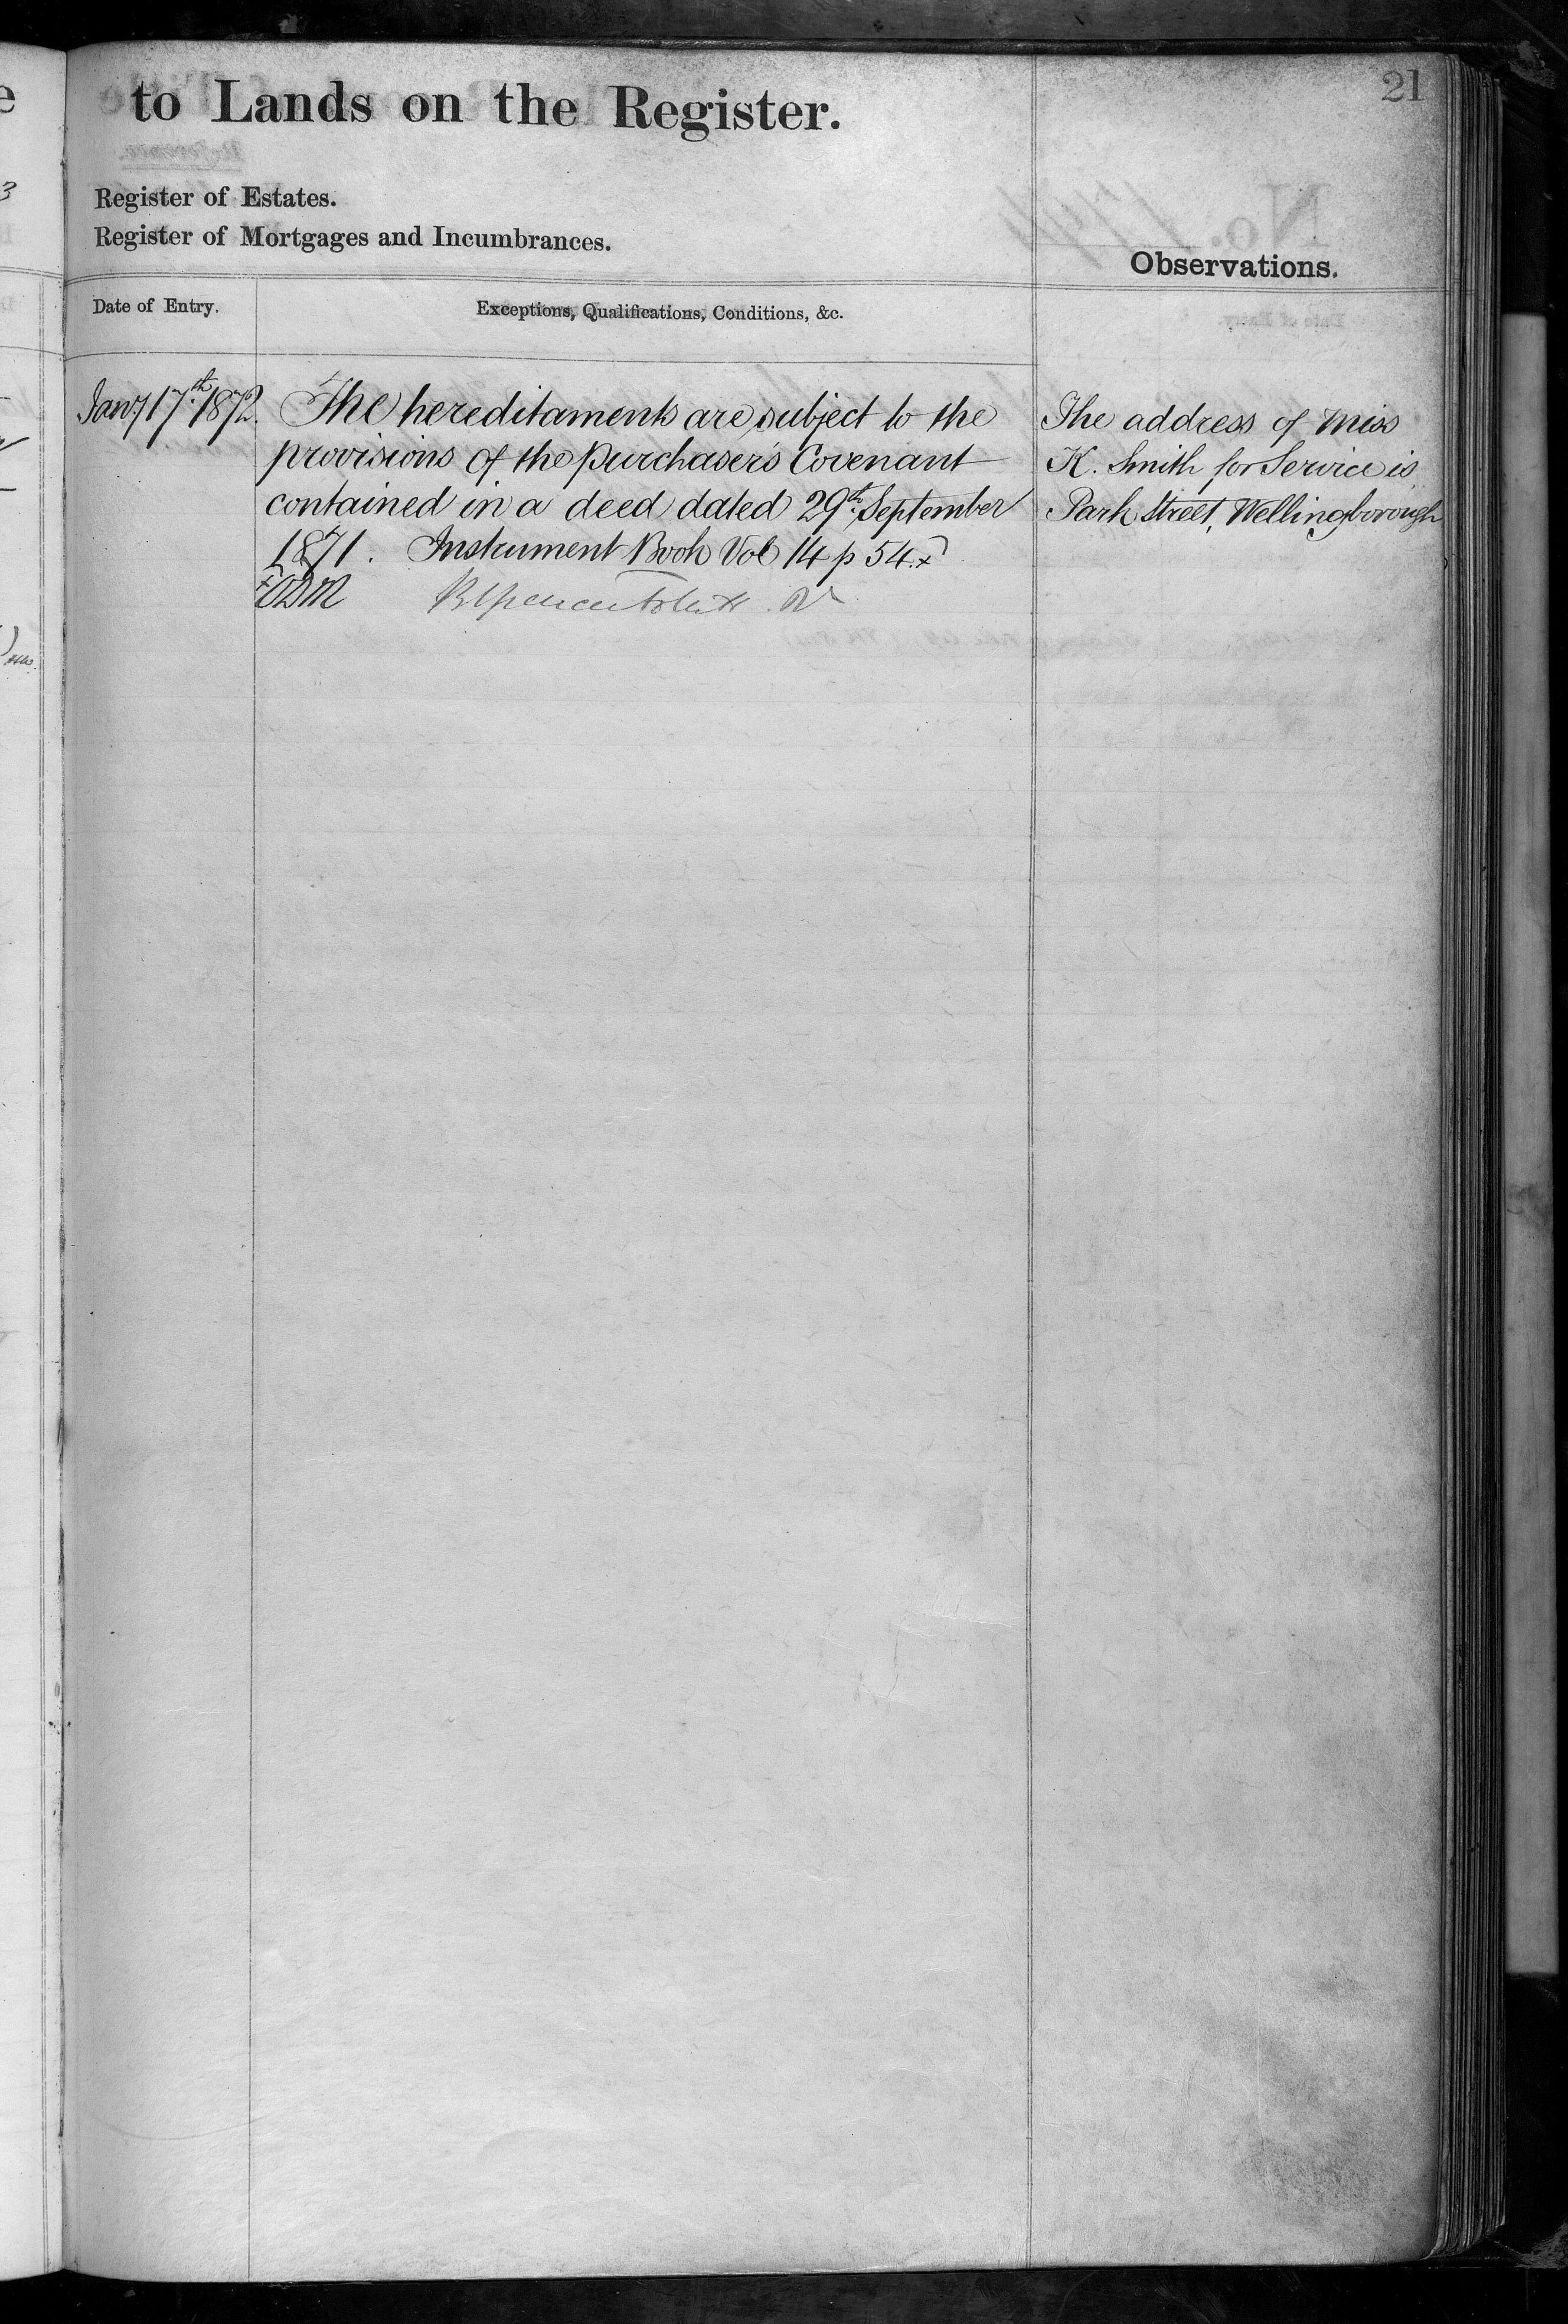 21
to Lands on the Register.
Register of Estates.
Register of Mortgages and Incumbrances.
Observations.
Date of Entry.
Exceptions, Qualifications, Conditions, &c.
Jany 17th 1872.
The hereditaments are subject to the
provisions of the purchaser's Covenant
contained in a deed dated 29th September
1871. Instrument Book Vol 14 p 54.x
The address of Miss
K. Smith for Service is
Park Street, Wellingborough